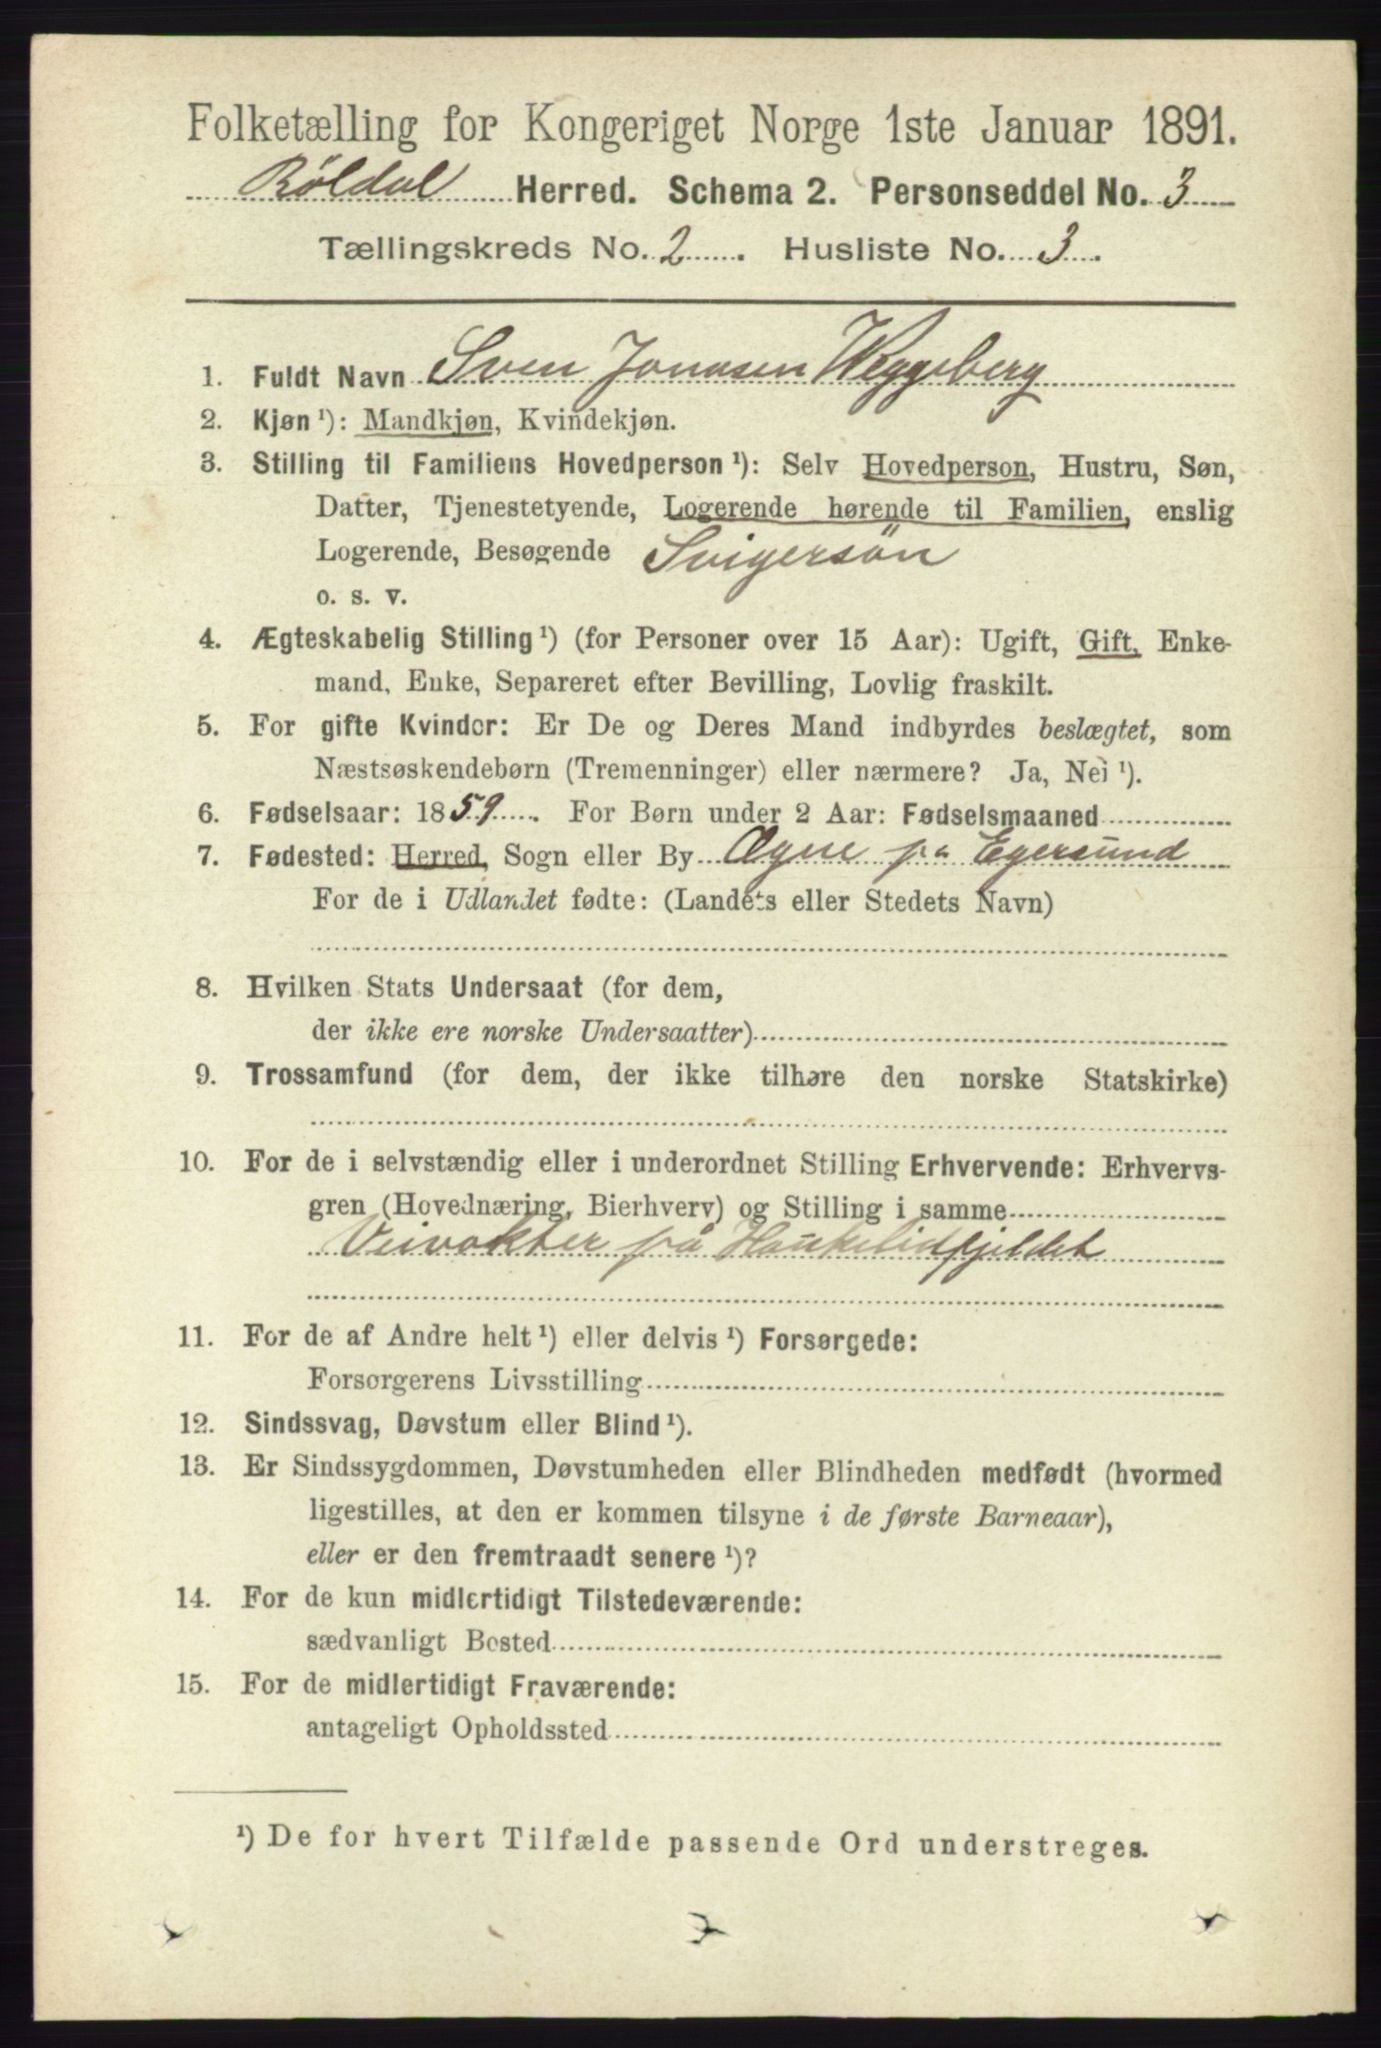 Folketælling for Kongeriget Norge 1ste Januar 1891.
Röldal Herred. Schema 2. Personseddel No. 3
Tællingskreds No. 2. Husliste No. 3.
1. Fuldt Navn Sven Jonasen Weggeberg
2. Kjøn ¹): Mandkjøn, Kvindekjøn.
3. Stilling til Familiens Hovedperson ¹): Selv Hovedperson, Hustru, Søn,
Datter, Tjenestetyende, Logerende hørende til Familien, enslig
Logerende, Besøgende Svigersön
o. s. v.
4. Ægteskabelig Stilling ¹) (for Personer over 15 Aar): Ugift, Gift, Enke-
mand, Enke, Separeret efter Bevilling, Lovlig fraskilt.
5. For gifte Kvinder: Er De og Deres Mand indbyrdes beslægtet, som
Næstsøskendebørn (Tremenninger) eller nærmere? Ja, Nei ¹).
6. Fødselsaar: 1859. For Børn under 2 Aar: Fødselsmaaned
7. Fødested: Herred, Sogn eller By Ogne pr Egersund
For de i Udlandet fødte: (Landets eller Stedets Navn)
8. Hvilken Stats Undersaat (for dem,
der ikke ere norske Undersaatter)
9. Trossamfund (for dem, der ikke tilhøre den norske Statskirke)
10. For de i selvstændig eller i underordnet Stilling Erhvervende: Erhvervs-
gren (Hovednæring, Bierhverv) og Stilling i samme
Veivokter på Haukelidfjeldet
11. For de af Andre helt ¹) eller delvis ¹) Forsørgede:
Forsørgerens Livsstilling
12. Sindssvag, Døvstum eller Blind ¹).
13. Er Sindssygdommen, Døvstumheden eller Blindheden medfødt (hvormed
ligestilles, at den er kommen tilsyne i de første Barneaar),
eller er den fremtraadt senere ¹)?
14. For de kun midlertidigt Tilstedeværende:
sædvanligt Bosted
15. For de midlertidigt Fraværende:
antageligt Opholdssted
¹) De for hvert Tilfælde passende Ord understreges.